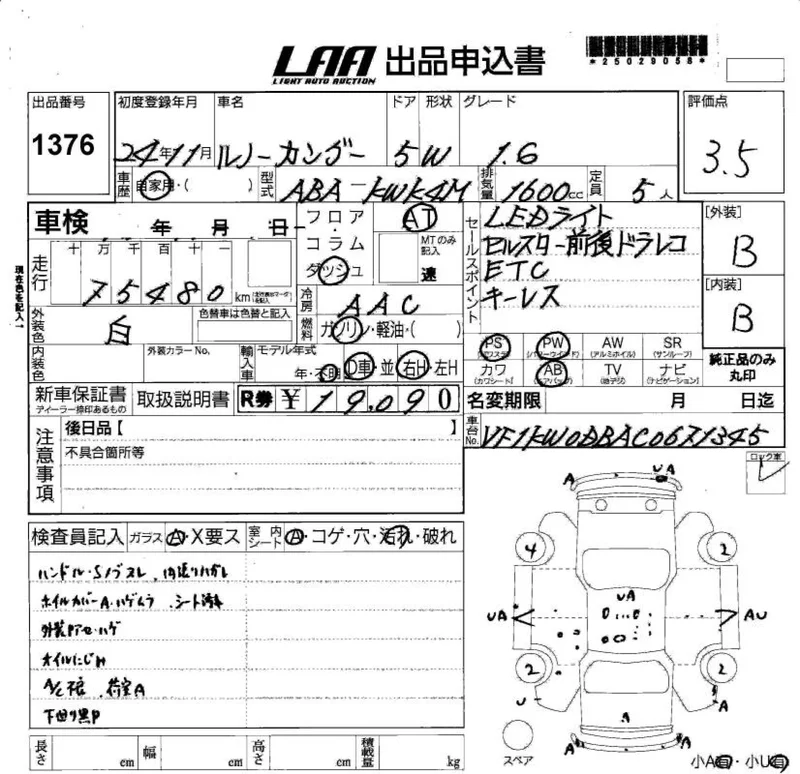 LAA 出品申込書
LIGHT AUTO AUCTION
*25029058*
出品番号 1376
初度登録年月 24年11月
車名 ルノーカングー
ドア 形状 5W
グレード 1.6
評価点 3.5
車歴 自家用・( )
型式 ABA-KWK4M
排気量 1600cc
定員 5人
車検 年 月 日
フロア コラム ダッシュ
AT
MTのみ記入 速
セールスポイント
LEDライト
セルスター前後ドラレコ
ETC
キーレス
[外装] B
[内装] B
現在色を記入→
走行 十 万 千 百 十 一
75480 km
冷房 AAC
燃料 ガソリン・軽油・( )
外装色 白
色替車は色替と記入
内装色
外装カラーNo.
輸入車 モデル年式 年・不明
D車・並 右H・左H
PS (パワステ) PW (パワーウインド) AW (アルミホイル) SR (サンルーフ)
カワ (カワシート) AB (エアバッグ) TV (地デジ) ナビ (ナビゲーション)
純正品のみ丸印
新車保証書 ディーラー捺印あるもの
取扱説明書
R券 ¥ 19,090
名変期限 月 日迄
車台No. VF1KW0BBAC0671345
注意事項
後日品【 】
不具合箇所等
ロック車
検査員記入 ガラス A・X要ス
室内シート A・コゲ・穴・汚れ・破れ
ハンドル・Sノブスレ、内張りハガレ
ホイルカバーA・ハゲムラ シート汚れ
オイルにじみ
A/C不良 荷室A
A UA
4 2
UA UA AU
2 2
U A
A
A A
スペア
小A有・小U有
長さ cm 幅 cm 高さ cm 積載量 kg